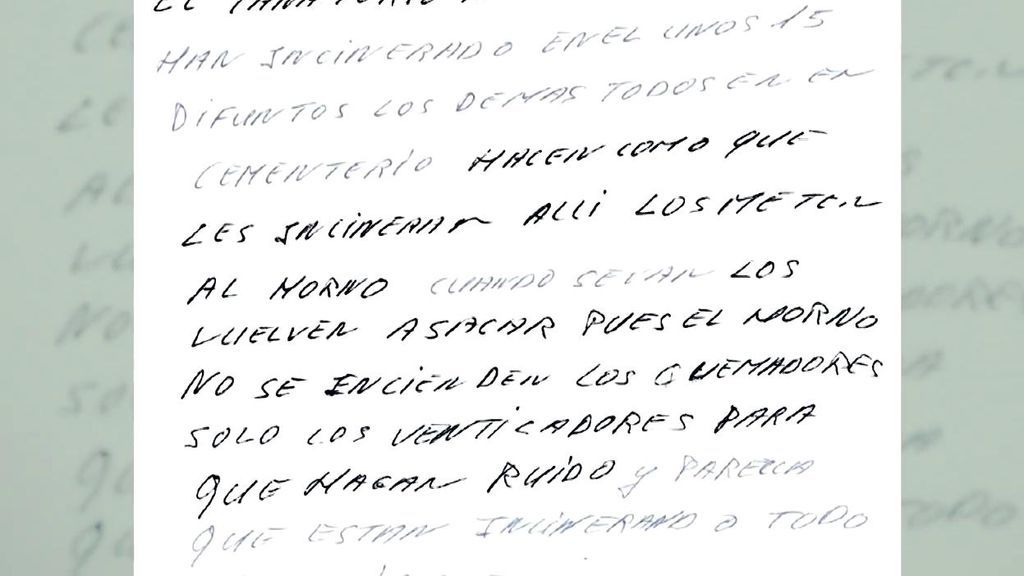 EL TANATORIO
HAN INCINERADO EN EL UNOS 15
DIFUNTOS LOS DEMAS TODOS EN EN
CEMENTERIO HACEN COMO QUE
LES INCINERAN ALLI LOS METEN
AL HORNO CUANDO SE VAN LOS
VUELVEN A SACAR PUES EL HORNO
NO SE ENCIENDEN LOS QUEMADORES
SOLO LOS VENTICADORES PARA
QUE HAGAN RUIDO y PARECIA
QUE ESTAN INCINERANDO TODO